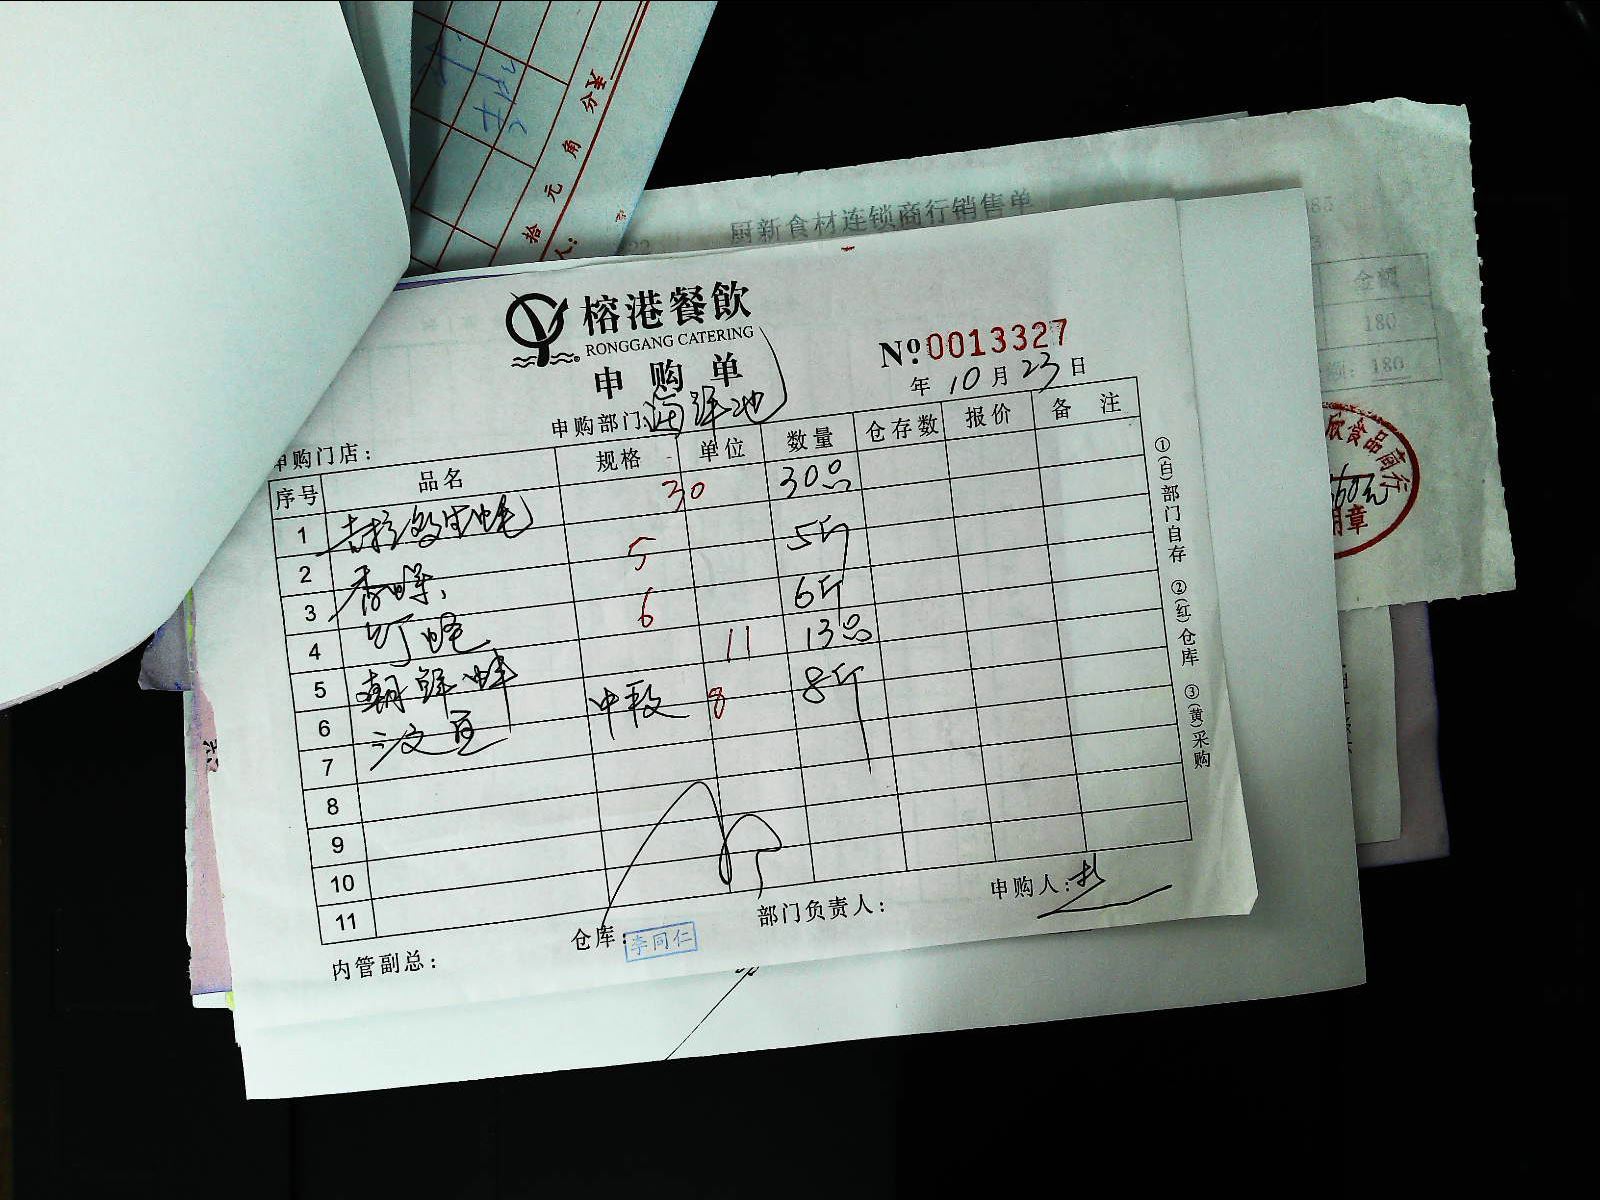 分
角
元
拾
人:
厨新食材连锁商行销售单
金额
180
180
欣食品商行
榕港餐飲
RONGGANG CATERING
申购单
№0013327
年 10 月 23 日
申购部门:海鲜池
申购门店:
序号 品名 规格 单位 数量 仓存数 报价 备注
1 吉拉多生蚝 30 30只
2 5 5斤
3 香螺 6 6斤
4 11 13只
5 朝鲜蚌 中段 8 8斤
6
7
8
9
10
11
内管副总:
仓库: 李同仁
部门负责人:
申购人:
①(白)部门自存 ②(红)仓库 ③(黄)采购